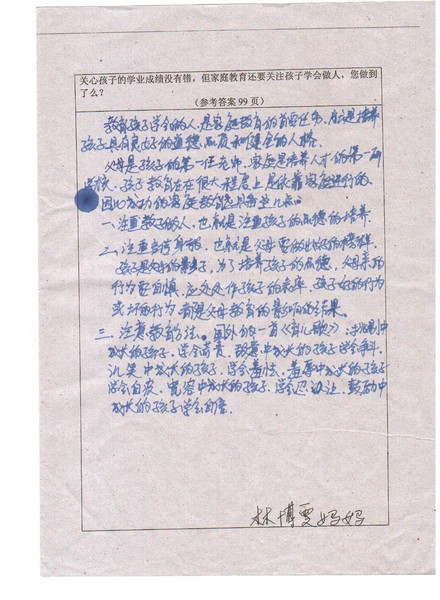 关心孩子的学业成绩没有错，但家庭教育还要关注孩子学会做人，您做到
了么？
（参考答案 99 页）
教育孩子学会做人，是家庭教育的首要任务，应是培养
孩子具有良好的道德品质和健全的人格。
父母是孩子的第一任老师，家庭是培养人才的第一所
学校，孩子教育在很大程度上是依靠家庭进行的，
因此成功的家庭教育应具备几点。
一、注重教子做人，也就是注重孩子的品德的培养
二、注重言传身教，也就是父母要做好的榜样，
孩子是父母的影子，为了培养孩子的品德，父亲的
行为要自慎，应处处作孩子的表率，孩子好的行为
或坏的行为都是父母教育的影响的结果。
三、注意教育方法。国外的一首《育儿歌》：批判中
成长的孩子，学会苛责，敌意中成长的孩子学会争斗，
讥笑中成长的孩子，学会羞怯，羞辱中成长的孩子
学会自疚，宽容中成长的孩子，学会忍让，鼓励中
成长的孩子学会自信。
林博雯妈妈